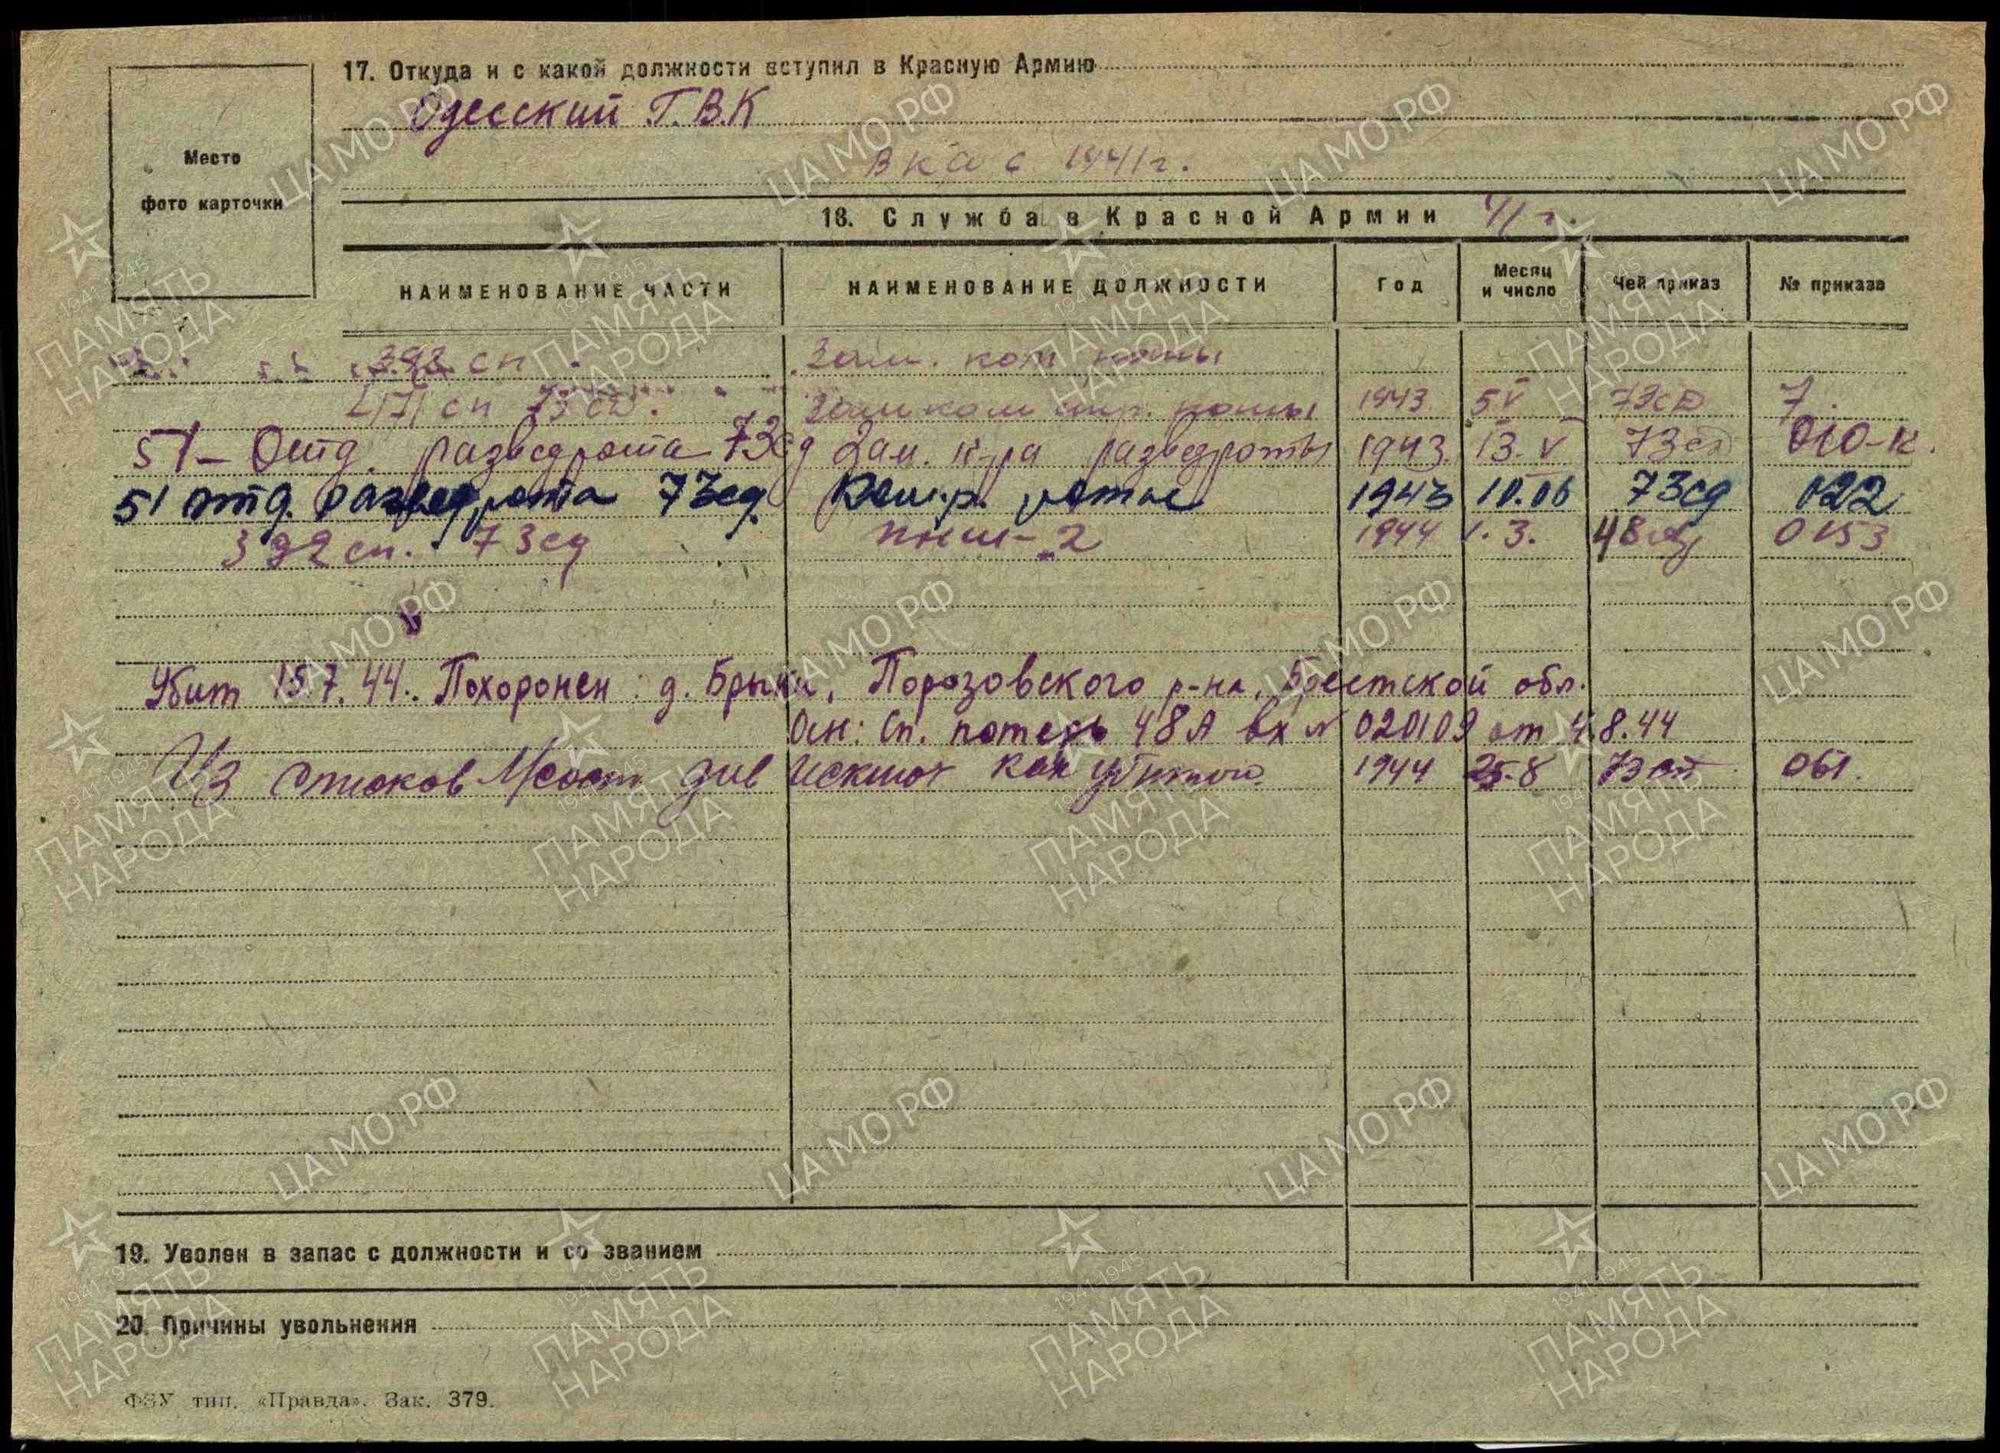 17. Откуда и с какой должности вступил в Красную Армию
Одесский Г.В.К
Место
фото карточки
в КА с 1941 г.
18. Служба в Красной Армии 41 г.
НАИМЕНОВАНИЕ ЧАСТИ НАИМЕНОВАНИЕ ДОЛЖНОСТИ Год Месяц и число Чей приказ № приказа
392 сп Зам. ком роты
471 сп 73 сд. Зам ком стр. роты 1943 5 V 73сд 7.
51 – Отд. разведрота 73сд Зам. к-ра разведроты 1943 13. V 73сд 010-к.
51 отд. разведрота 73сд. Ком-р. роты 1943 10.06 73сд 022
392 сп. 73сд пнш-2 1944 1. 3. 48 А 0153
Убит 15.7.44. Похоронен: д. Брыки, Порозовского р-на, Брестской обл.
Осн: Сп. потерь 48А вх № 020109 от 4.8.44
Из списков див исключ как убитого 1944 25.8 061.
19. Уволен в запас с должности и со званием
20. Причины увольнения
ФЗУ тип. «Правда». Зак. 379.
ЦА МО РФ
1941-1945
ПАМЯТЬ
НАРОДА